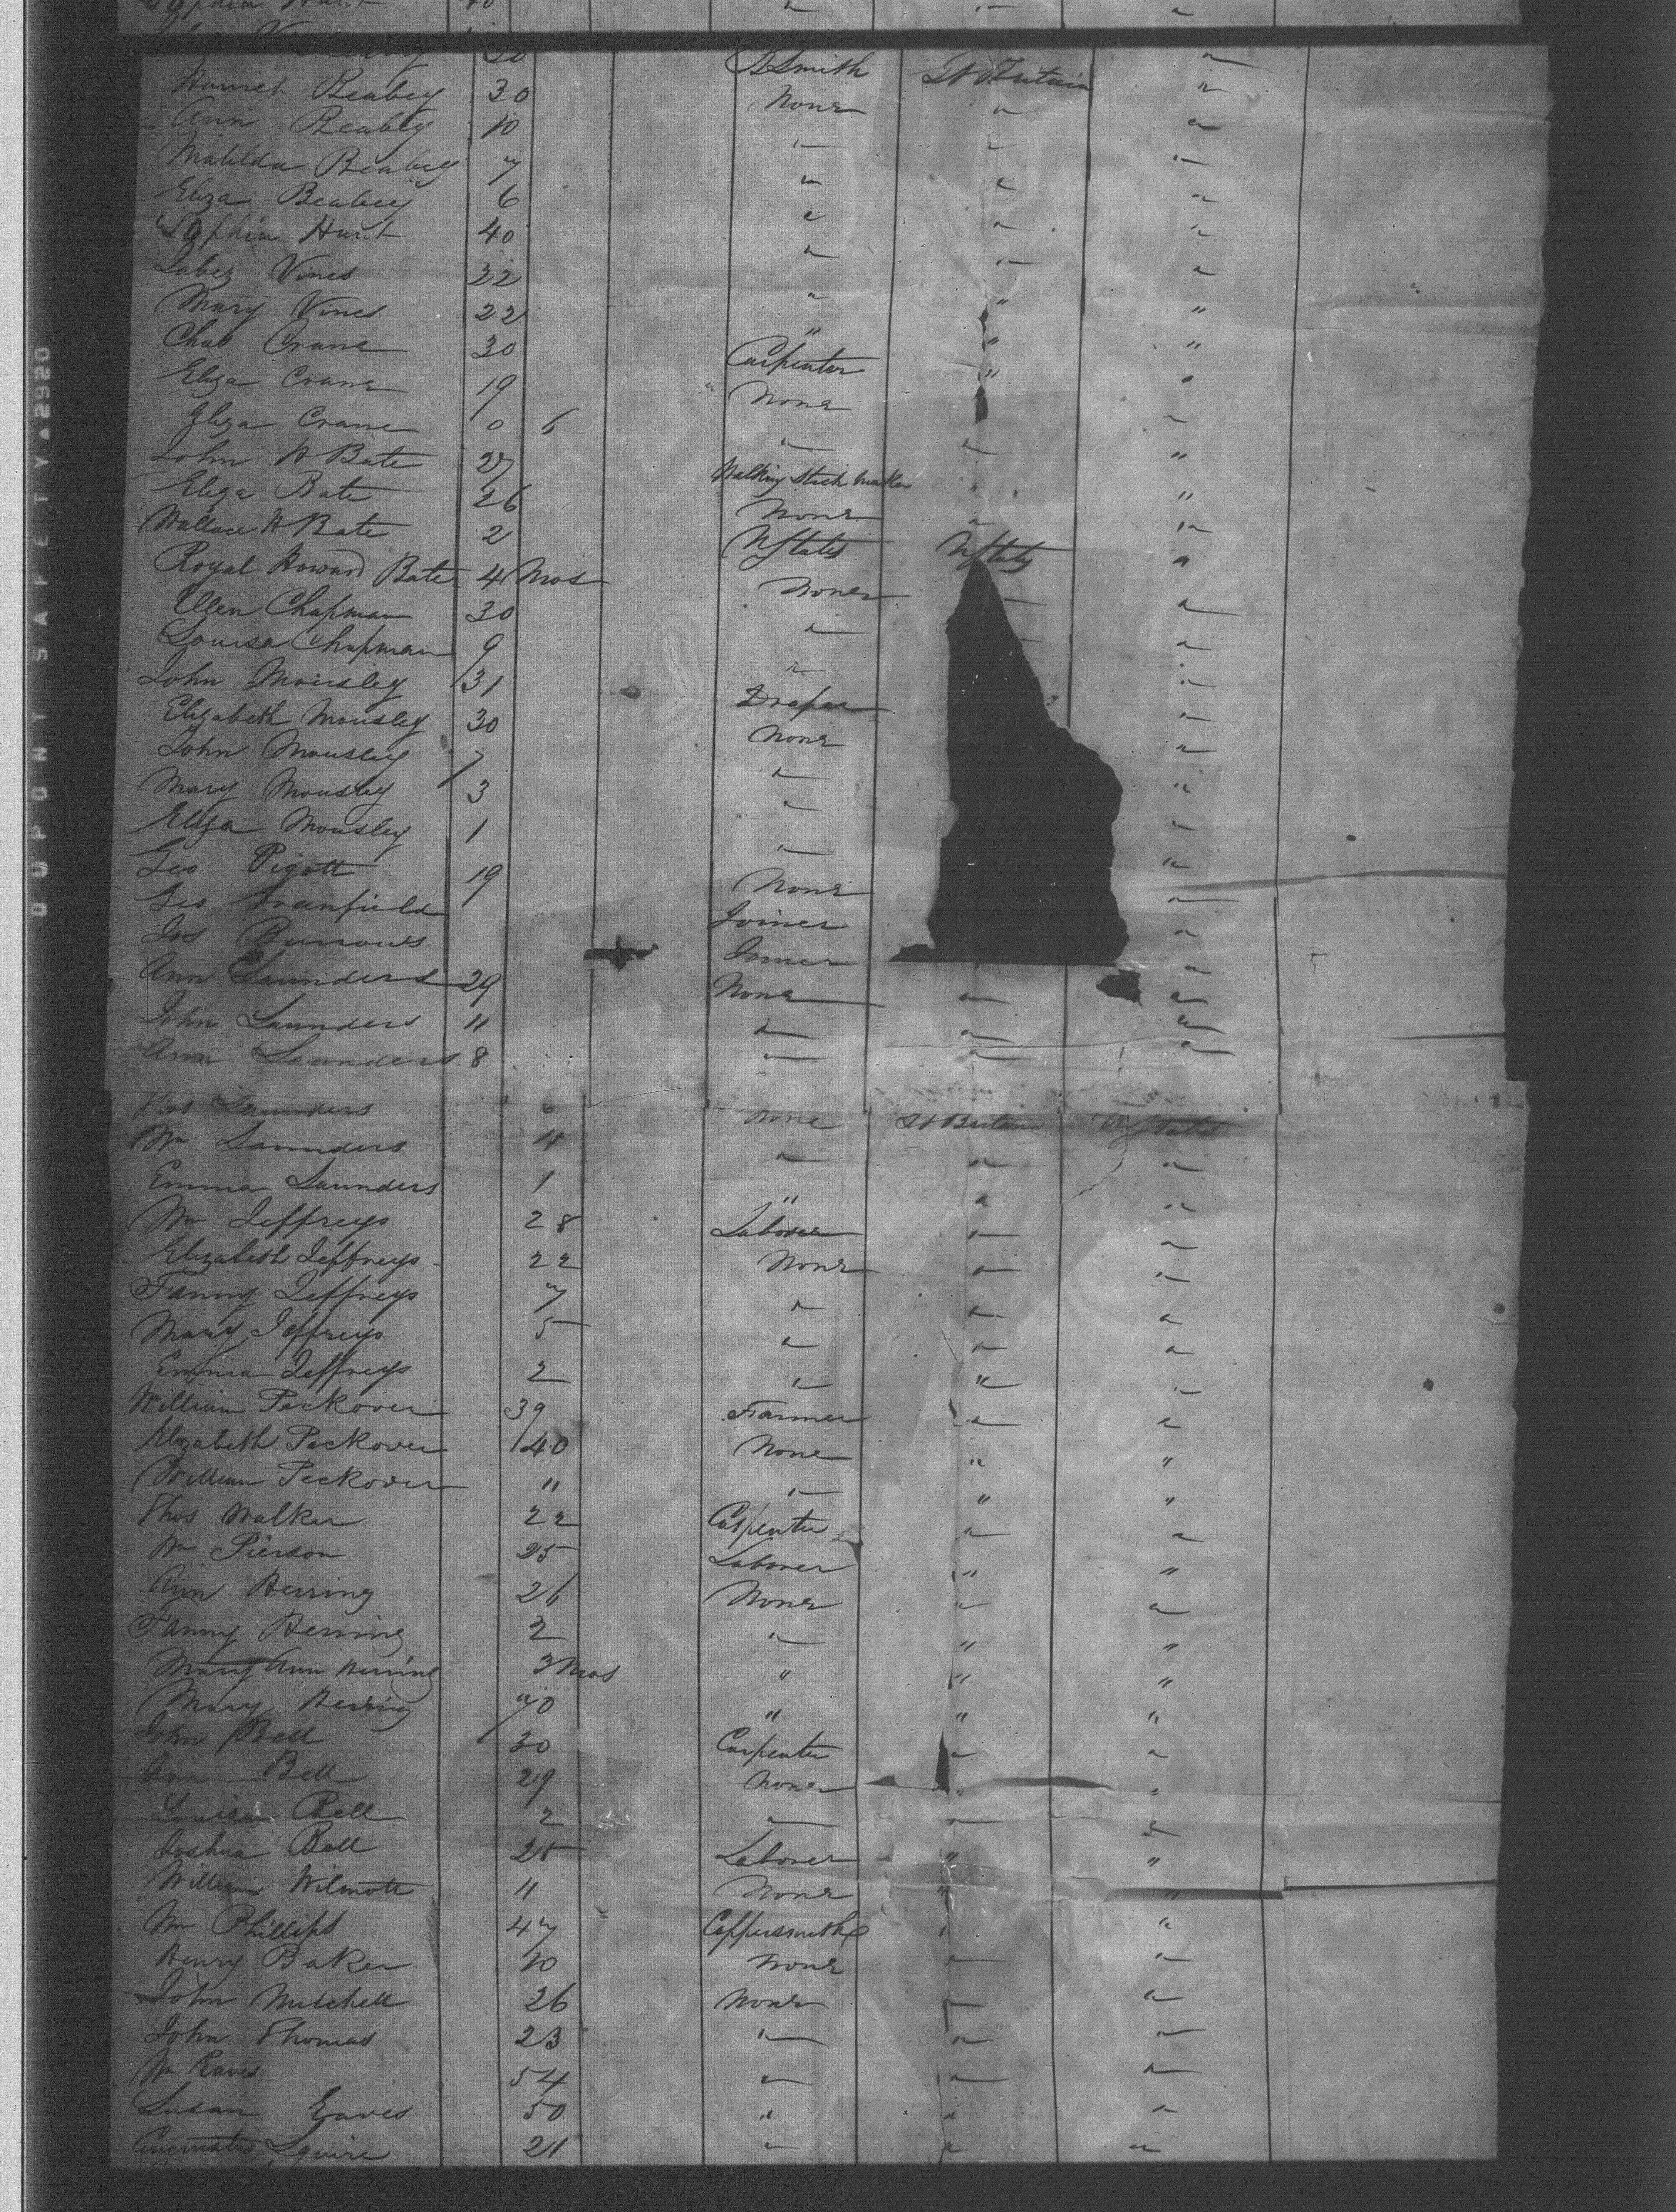 Sophia Hunt 40 " " "
30 B Smith Gt Britain "
Harriet Beabey 30 None " "
Ann Beabey 10 " " "
Matilda Beabey 7 " " "
Eliza Beabey 6 " " "
Sophia Hunt 40 " " "
Jabez Vines 32 " " "
Mary Vines 22 " " "
Chas Crane 30 Carpenter " "
Eliza Crane 19 None " "
Eliza Crane 0 6 " " "
John H Bate 27 Walking Stick maker " "
Eliza Bate 26 None " "
Wallace H Bate 2 U States U States "
Royal Howard Bate 4 Mos None "
Ellen Chapman 30 " "
Louisa Chapman 9 " "
John Mousley 31 Draper "
Elizabeth Mousley 30 None "
John Mousley 7 " "
Mary Mousley 3 " "
Eliza Mousley 1 " "
Geo Pigott 19 None "
Geo Greenfield Joiner "
Jos Burrows Joiner "
Ann Saunders 29 None " "
John Saunders 11 " " "
Ann Saunders 8 " " "
Thos Saunders 6 None Gt Britain U States
Wm Saunders 4 " " "
Emma Saunders 1 " " "
Wm Jeffreys 28 Laborer " "
Elizabeth Jeffreys 22 None " "
Fanny Jeffreys 7 " " "
Mary Jeffreys 5 " " "
Emma Jeffreys 2 " " "
William Peckover 39 Farmer " "
Elizabeth Peckover 40 None " "
William Peckover 11 " " "
Thos Walker 22 Carpenter " "
Wm Pierson 25 Laborer " "
Ann Herring 26 None " "
Fanny Herring 2 " " "
Mary Ann Herring 3 Mos " " "
Mary Herring 70 " " "
John Bell 30 Carpenter " "
Ann Bell 29 None " "
Louisa Bell 2 " " "
Joshua Bell 25 Laborer " "
William Wilmott 11 None " "
Wm Phillips 47 Coppersmith " "
Henry Baker 20 None " "
John Mitchell 26 None " "
John Thomas 23 " " "
Wm Eaves 54 " " "
Susan Eaves 50 " " "
Cincinatus Squire 21 " " "
DUPONT SAFETY ▲2920